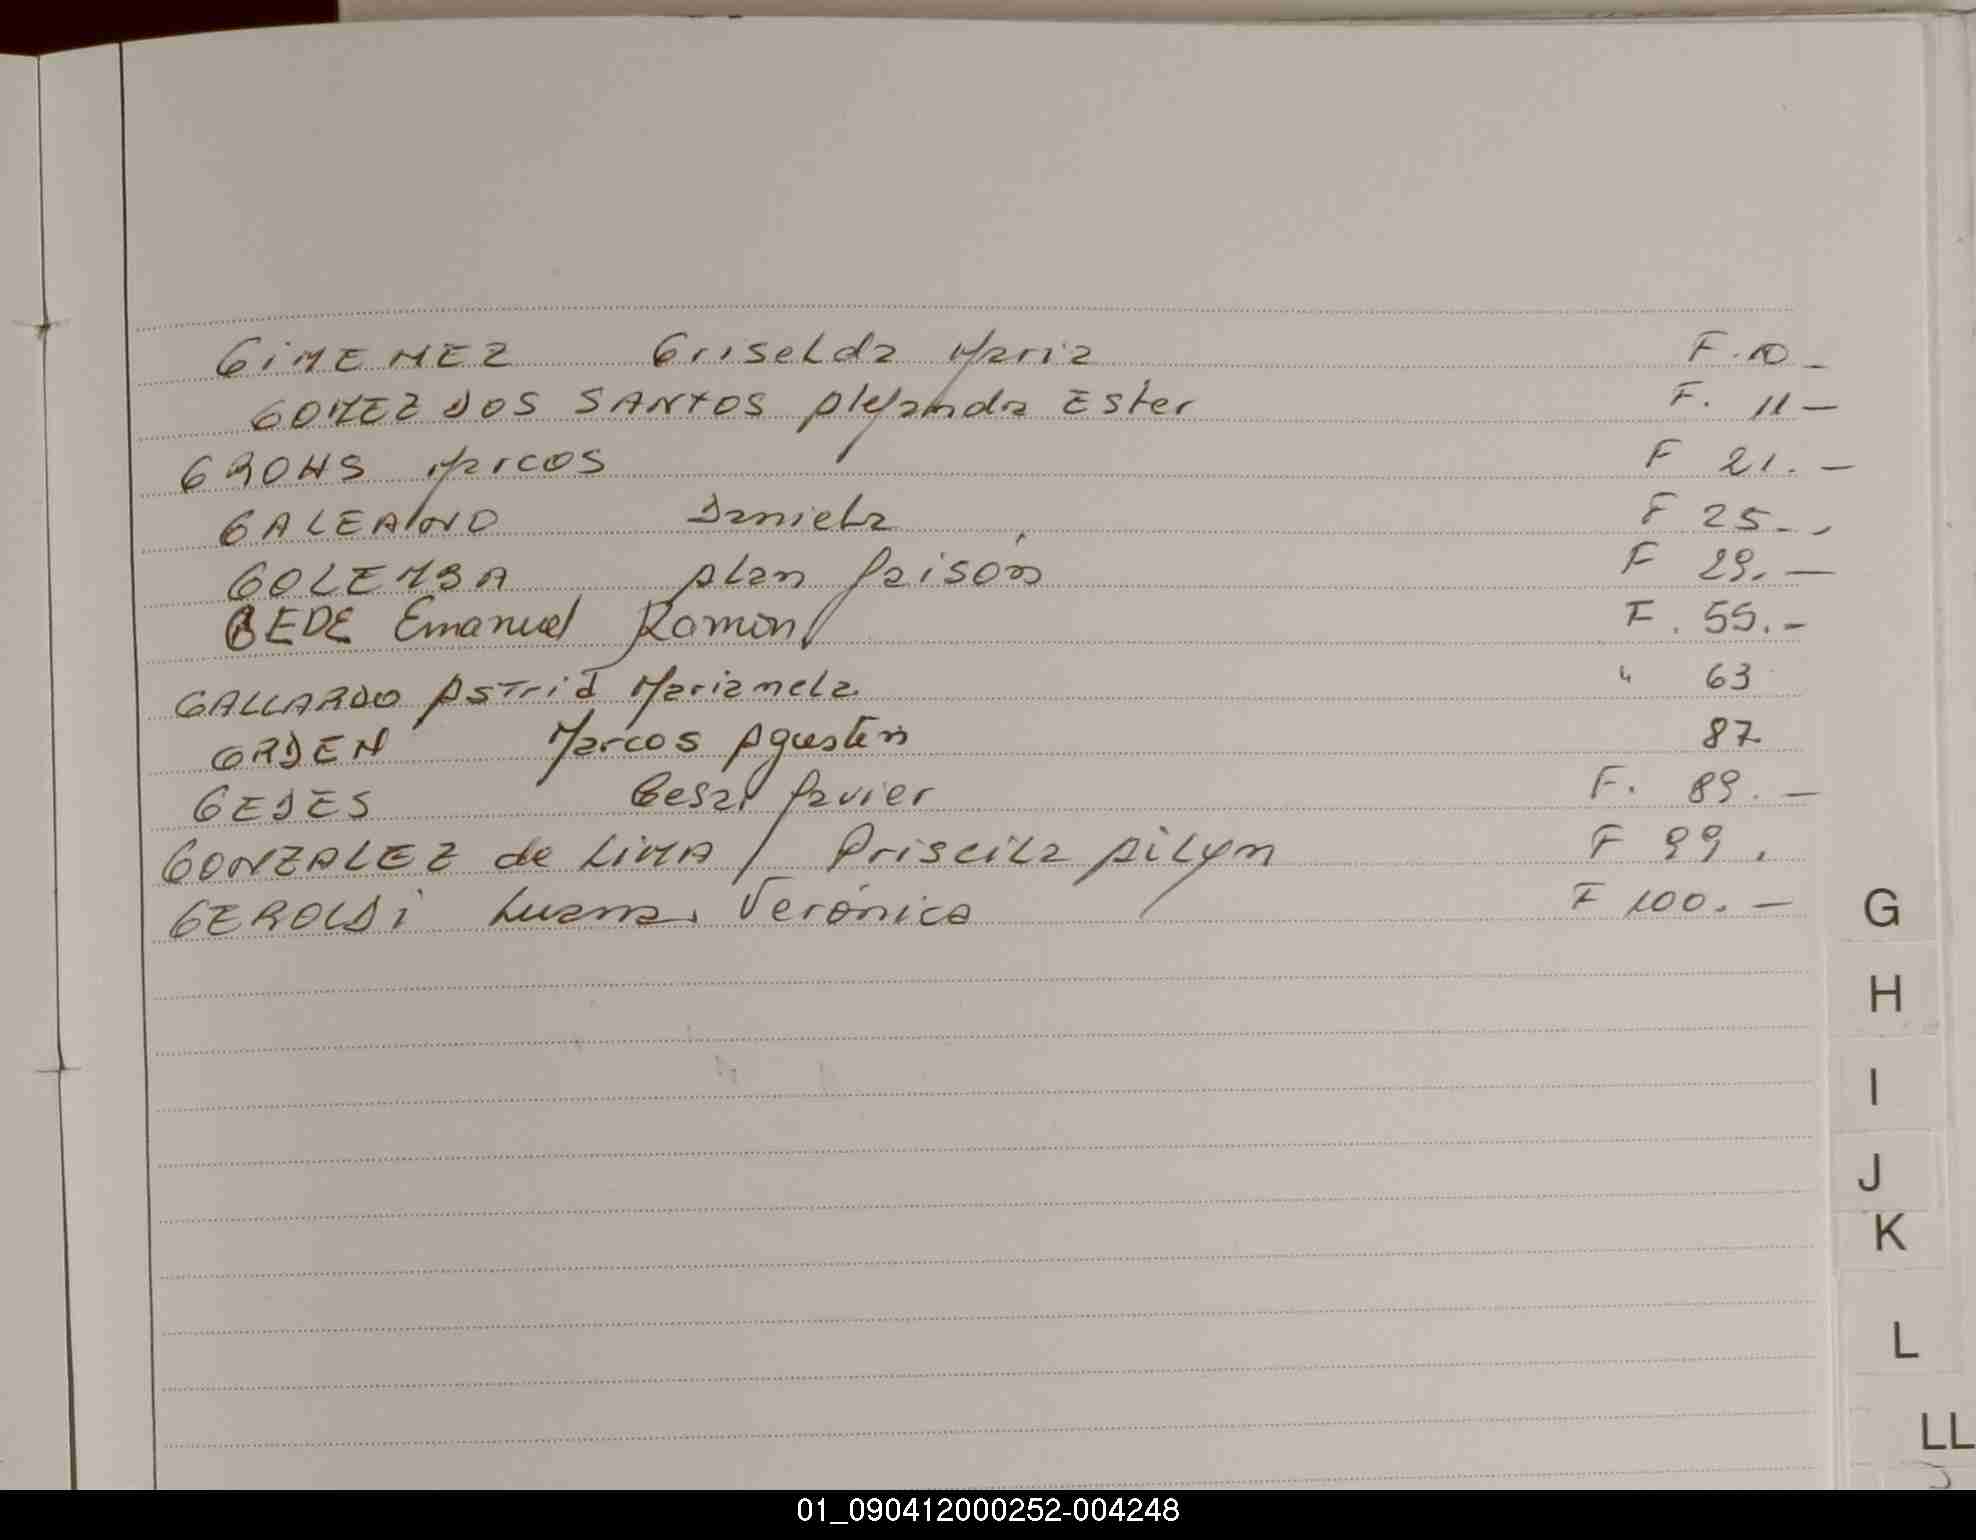 GIMENEZ Griselda Maria F. 10 -
GOMEZ DOS SANTOS Alejandra Ester F. 11 -
GROHS Marcos F 21. -
GALEANO Daniela F 25 - -
GOLEMBA Alan Jaisón F 29. -
BEDE Emanuel Ramon F. 55. -
GALLARDO Astrid Marianela " 63
ORDEN Marcos Agustin 87
GEDES Cesar Javier F. 89. -
GONZALEZ de LIMA Priscila Ailyn F 99.
GEROLDI Luana Verónica F 100. -
G
H
I
J
K
L
LL
01_090412000252-004248